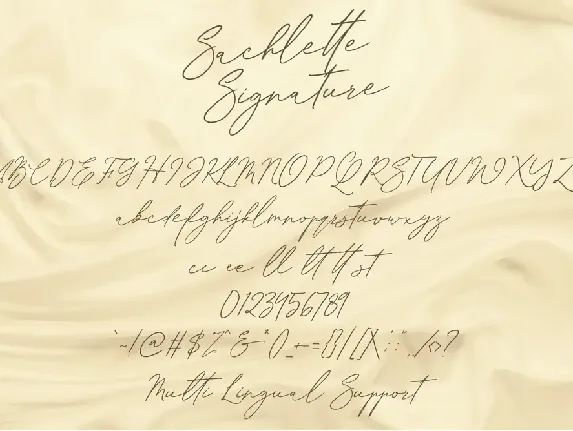 Sachlette
Signature
ABCDEFGHIJKLMNOPQRSTUVWXYZ
abcdefghijklmnopqrstuvwxyz
cc ee ll lt tt st
0123456789
`~!@#$%^&*()_-+={}|/[]\:;"'.,/<>?
Multi Lingual Support